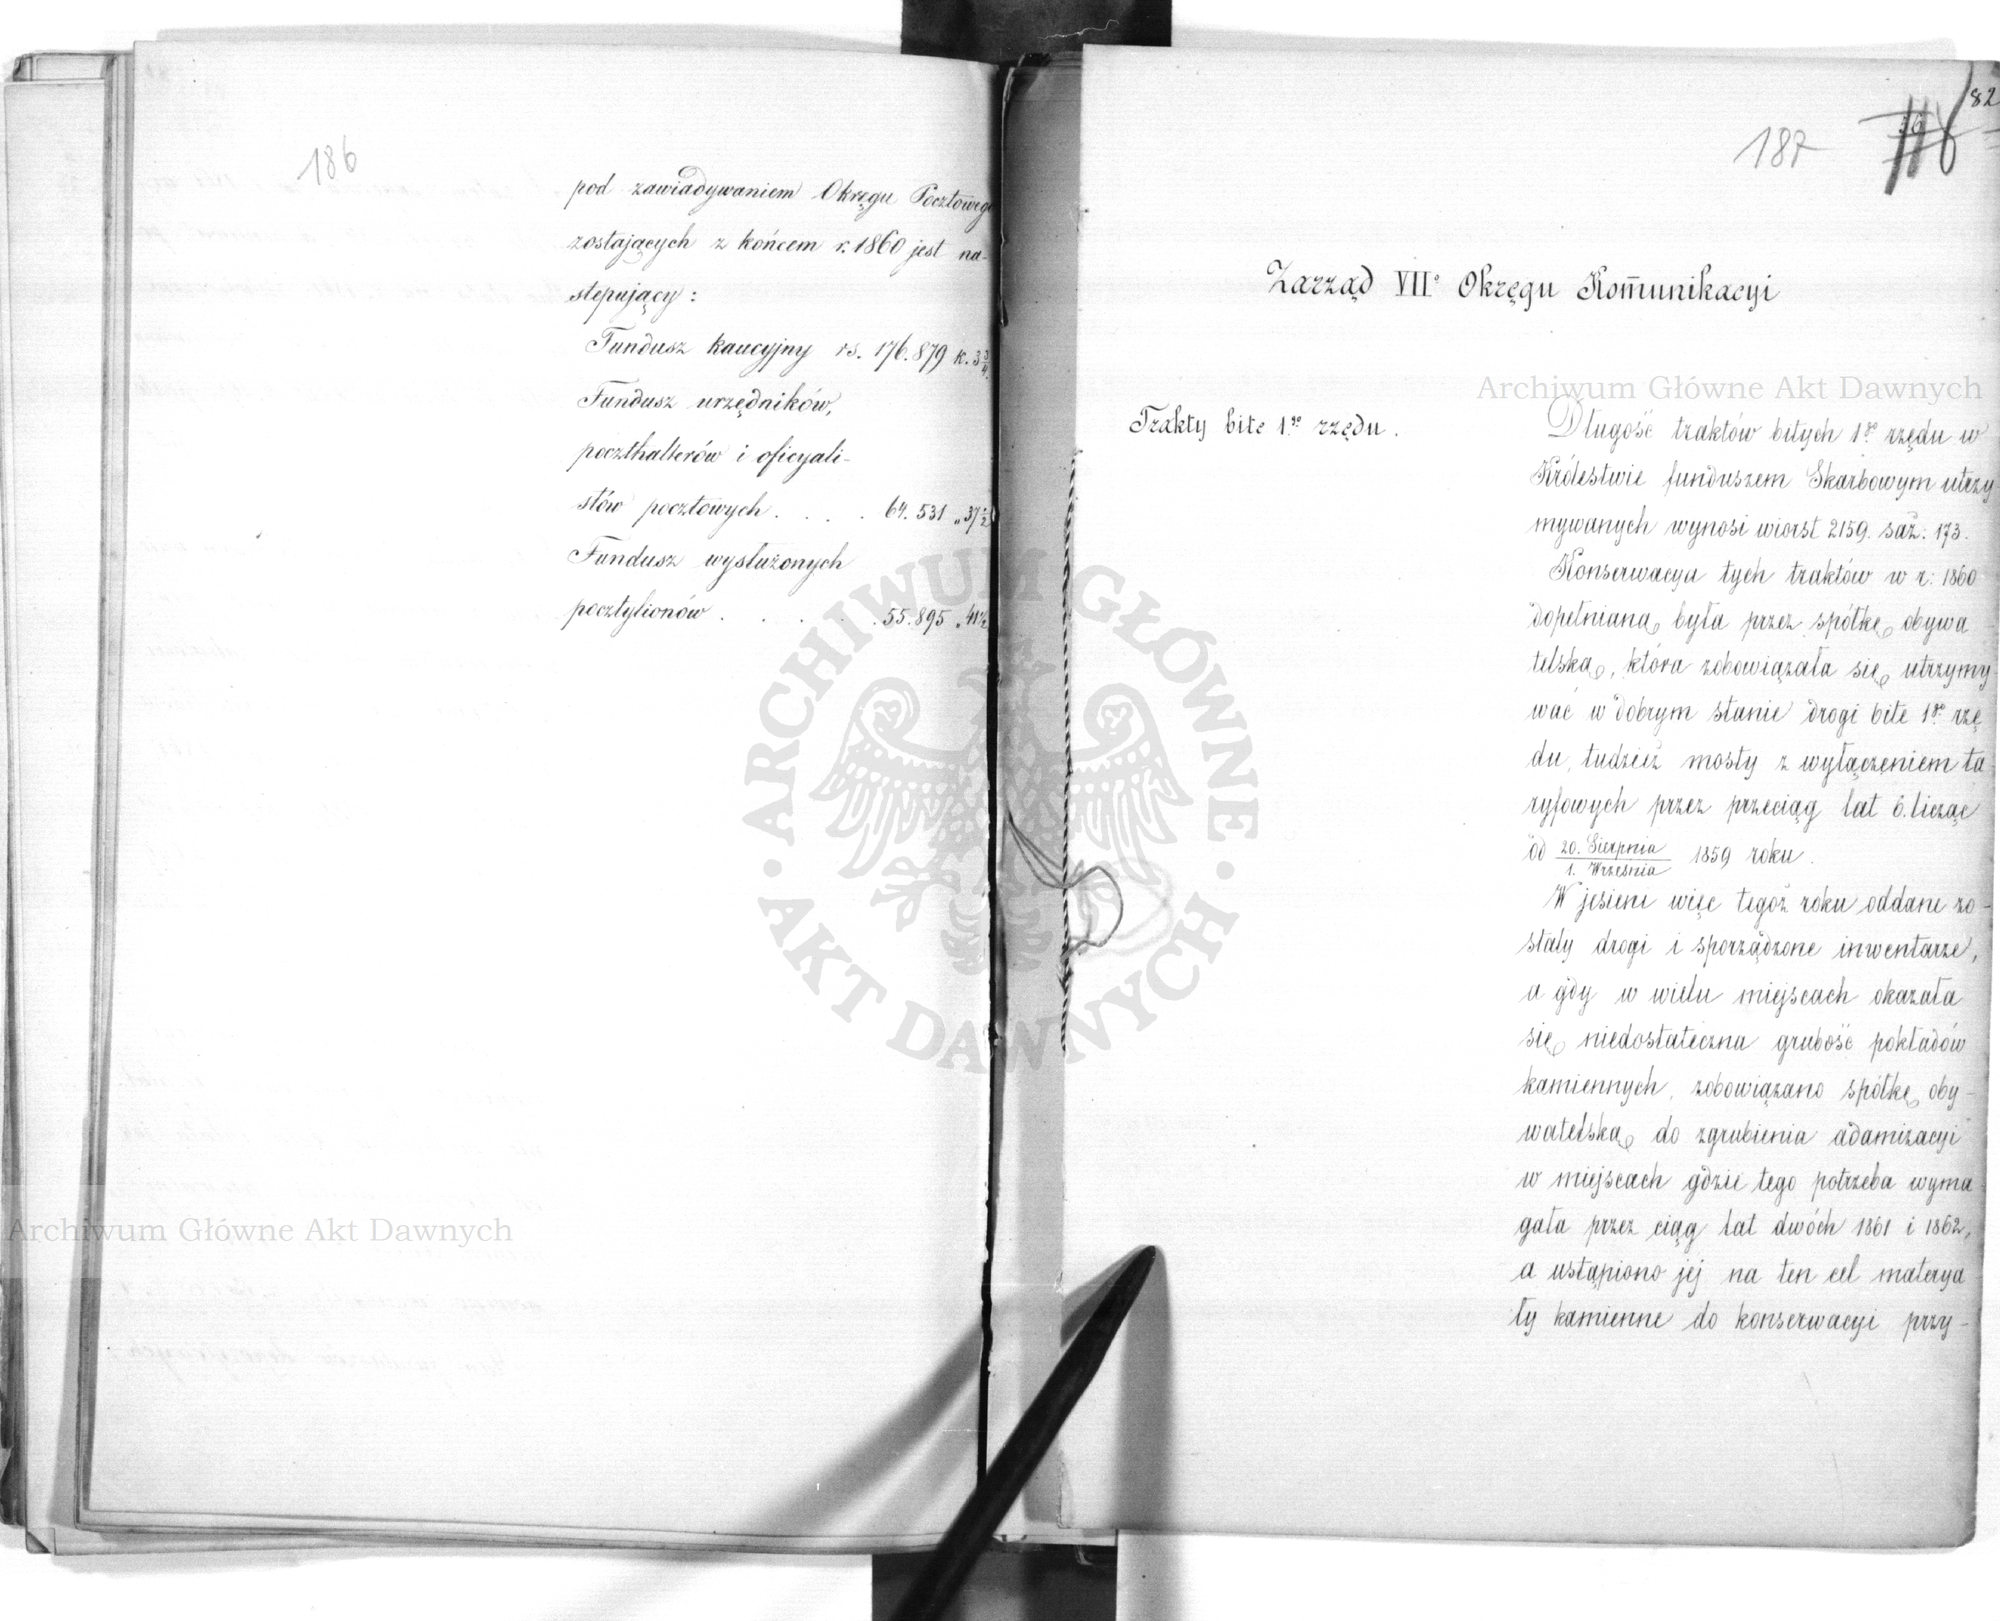 186
pod zawiadywaniem Okręgu Pocztowego
zostających z końcem r. 1860 jest na-
stepujący:
Fundusz kaucyjny rs. 176.879 k. 3 3/4.
Fundusz urzędników,
poczthalterów i oficyali-
stów pocztowych . . . . 64.531 „ 37 1/2
Fundusz wysłużonych
pocztylionów . . . . . 55.895 „ 41 1/2
82
187
Zarząd VIIo Okręgu Kom̄unikacyi
Trakty bite 1go rzędu.
Długość traktów bitych 1go rzędu w
Królestwie funduszem Skarbowym utrzy
mywanych wynosi wiorst 2159. saż: 173.
Konserwacya tych traktów w r: 1860
dopełnianą była przez spółkę obywa
telską, która zobowiązała się utrzymy-
wać w dobrym stanie drogi bite 1go rzę
du, tudzież mosty z wyłączeniem ta
ryfowych przez przeciąg lat 6. licząc
od 20. Sierpnia / 1. Września 1859 roku.
W jesieni więc tegoż roku oddane zo-
stały drogi i sporządzone inwentarze,
a gdy w wielu miejscach okazała
się niedostateczna grubość pokładów
kamiennych, zobowiązano spółkę oby-
watelską do zgrubienia adamizacyi
w miejscach gdzie tego potrzeba wyma-
gała przez ciąg lat dwóch 1861 i 1862,
a ustąpiono jej na ten cel materya
ły kamienne do konserwacyi przy-
Archiwum Główne Akt Dawnych
Archiwum Główne Akt Dawnych
ARCHIWUM GŁÓWNE
AKT DAWNYCH